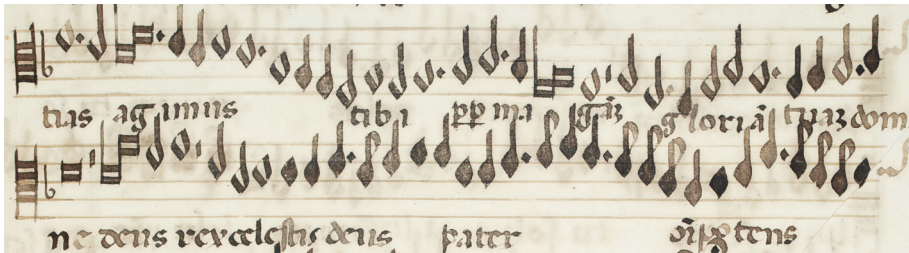 tias agimus tibi pp ma gāz gloriā tuaz dom
ne deus rex celestis deus pater oīpotens